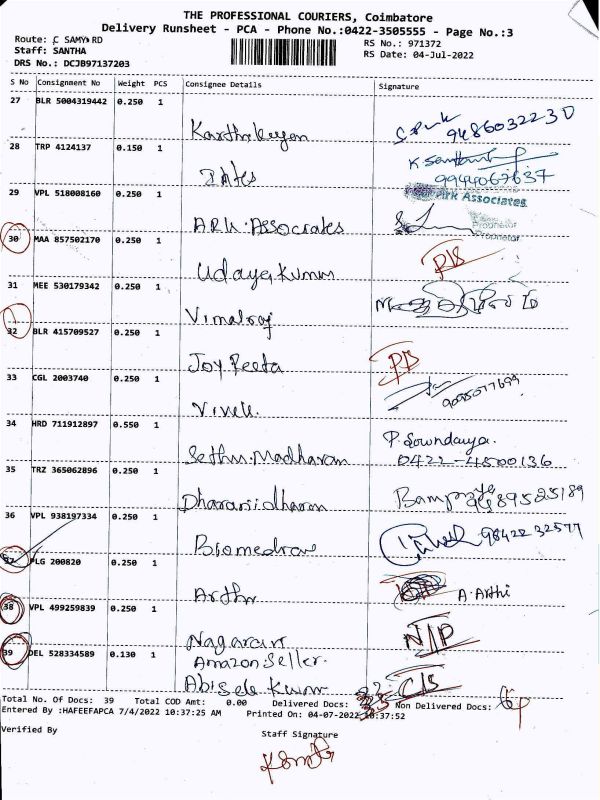 THE PROFESSIONAL COURIERS, Coimbatore
Delivery Runsheet - PCA - Phone No.:0422-3505555 - Page No.:3
Route: C SAMY RD
RS No.: 971372
Staff: SANTHA
RS Date: 04-Jul-2022
DRS No.: DCJB97137203
S No Consignment No Weight PCS Consignee Details Signature
27 BLR 5004319442 0.250 1
Karthikeyan
9486032230
28 TRP 4124137 0.150 1
K Santhanu
9944067637
29 VPL 518008160 0.250 1
Ark Associates
ARK. Associates
Proprietor
30 MAA 857502170 0.250 1
Udayakumar
31 MEE 530179342 0.250 1
Vimalraj
32 BLR 415709527 0.250 1
Joy Reeta
33 CGL 2003740 0.250 1
Vivek.
34 HRD 711912897 0.550 1
P. Sowndarya.
Sethu. Madhavan 0422-4500136
35 TRZ 365062896 0.250 1
Dharanidharan
36 VPL 938197334 0.250 1
Biomedron 98422 32577
37 PLG 200820 0.250 1
Arthi A. Arthi
38 VPL 499259839 0.250 1
Nagarajan N/P
39 DEL 528334589 0.130 1
Amazon Seller.
Abisek Kumar
Total No. Of Docs: 39 Total COD Amt: 0.00 Delivered Docs: Non Delivered Docs:
Entered By :HAFEEFAPCA 7/4/2022 10:37:25 AM Printed On: 04-07-2022 10:37:52
Verified By Staff Signature